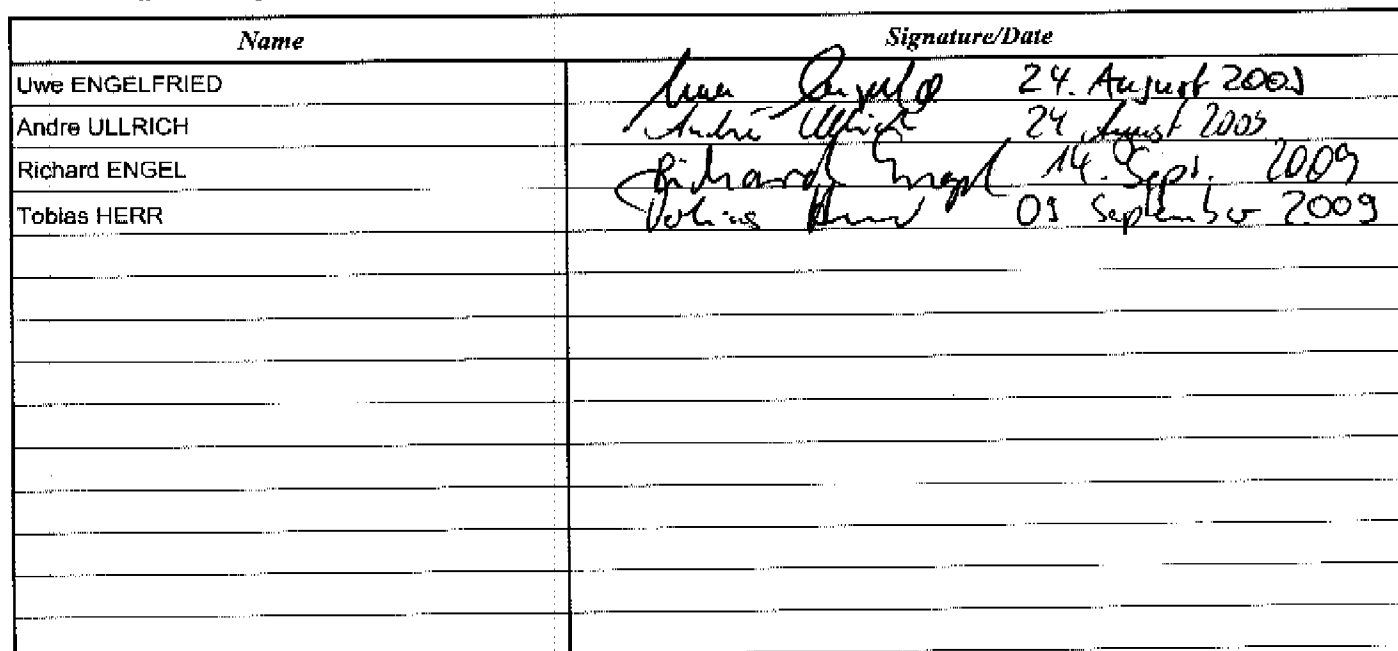 Name Signature/Date
Uwe ENGELFRIED Uwe 24. August 2009
Andre ULLRICH André Ullrich 24 August 2009
Richard ENGEL Richard Engel 14. Sept. 2009
Tobias HERR Tobias Herr 09 September 2009